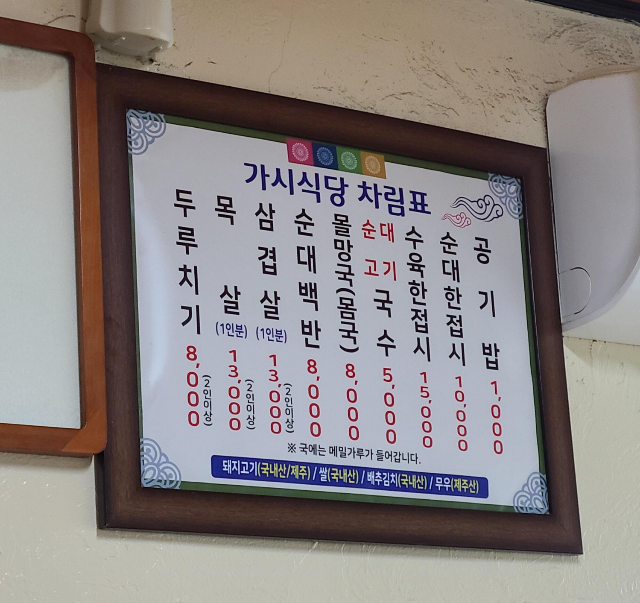 가시식당 차림표
두루치기 8,000 (2인이상)
목살 (1인분) 13,000 (2인이상)
삼겹살 (1인분) 13,000 (2인이상)
순대백반 8,000
몰망국(몸국) 8,000
순대 고기 국수 5,000
수육한접시 15,000
순대한접시 10,000
공기밥 1,000
※ 국에는 메밀가루가 들어갑니다.
돼지고기(국내산/제주) / 쌀(국내산) / 배추김치(국내산) / 무우(제주산)